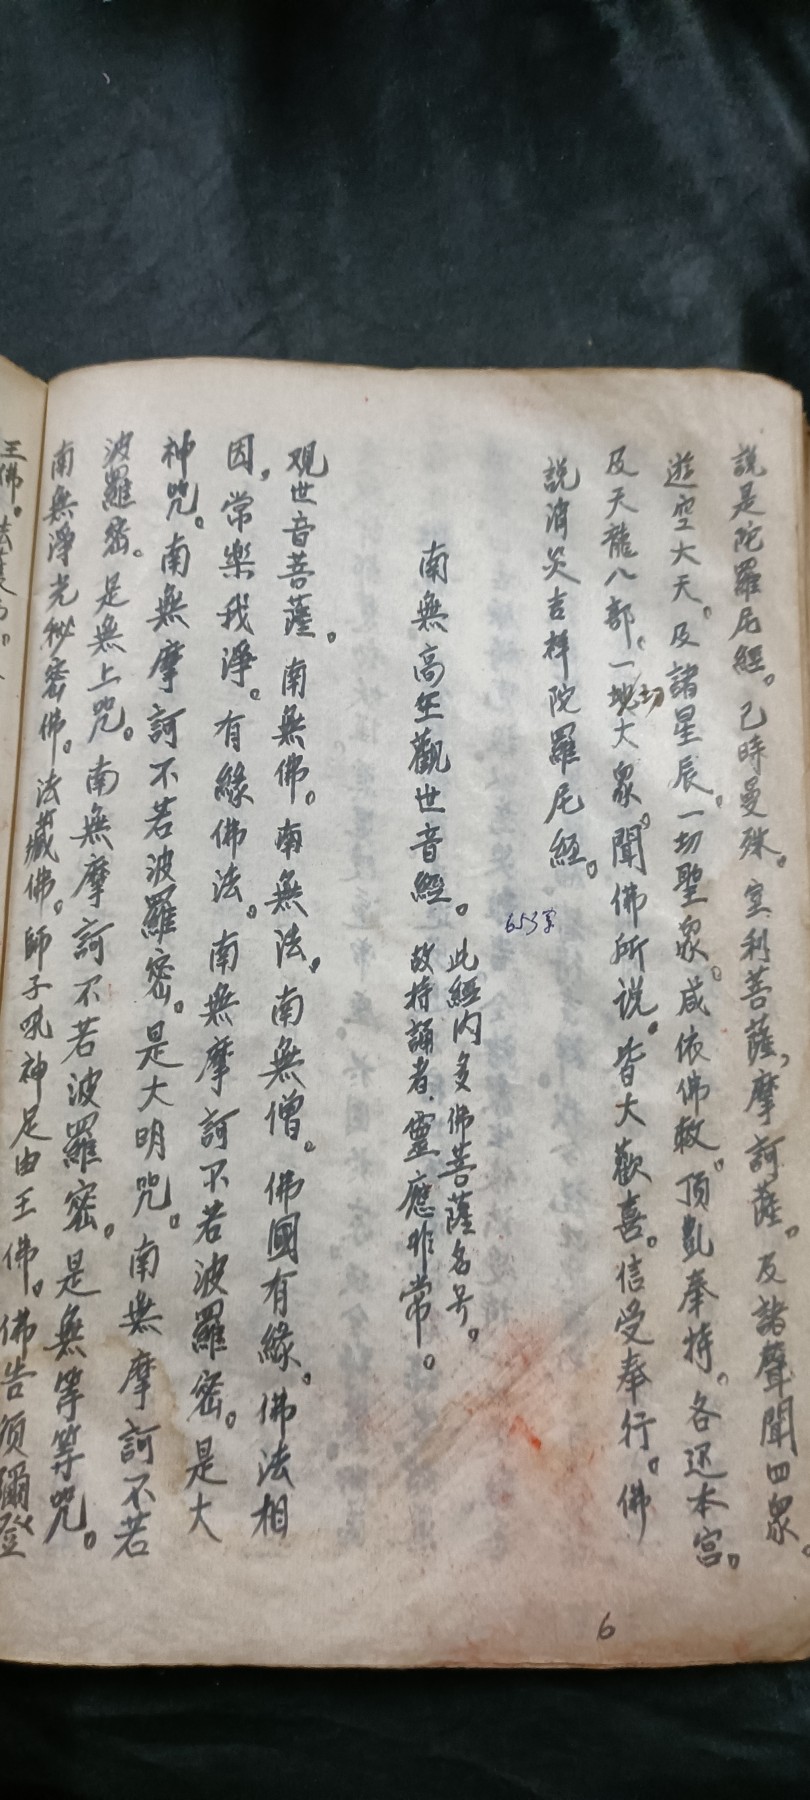 說是陀羅尼經。已時曼殊。室利菩薩，摩訶薩。及諸聲聞四眾。
遊空大天。及諸星辰。一切聖眾。咸依佛敕。頂㪟奉持。各还本宮。
及天龍八部。一切大眾。聞佛所说。皆大歡喜。信受奉行。佛
說消災吉祥陀羅尼經。
653字
南無高至觀世音經。
此經内多佛菩薩名号。
故持誦者．靈應非常。
观世音菩薩。南無佛。南無法。南無僧。佛國有緣。佛法相
因，常樂我淨。有緣佛法。南無摩訶不若波羅密。是大
神咒。南無摩訶不若波羅密。是大明咒。南無摩訶不若
波羅密。是無上咒。南無摩訶不若波羅密。是無等等咒。
南無淨光秘密佛。法藏佛。師子吼神足由王佛。佛告須彌登
王佛。法護
6